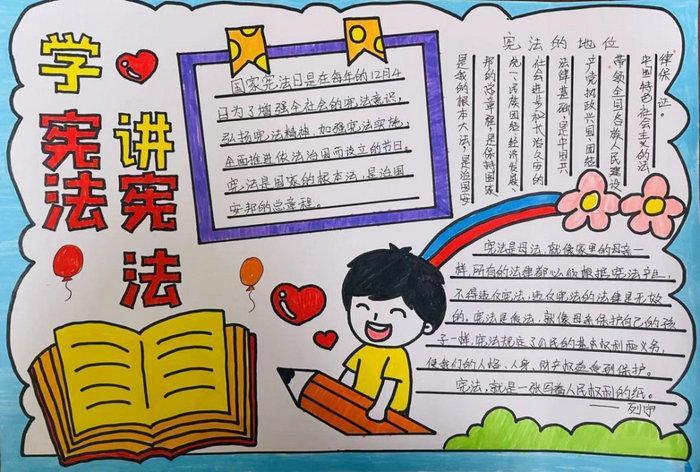 学宪法
讲宪法
国家宪法日是在每年的12月4
日为了增强全社会的宪法意识,
弘扬宪法精神,加强宪法实施,
全面推进依法治国而设立的节日。
宪法是国家的根本法,是治国
安邦的总章程。
宪法的地位
是我的根本大法,是治国安
邦的总章程,是保持国家
统一、民族团结、经济发展、
社会进步和长治久安的
法律基础,是中国共
产党执政兴国团结
带领全国各族人民建设
中国特色社会主义的法
律保证。
宪法是母法,就像家里的母亲一
样,所有的法律都必须根据宪法产且
不得违反宪法,违反宪法的法律是无效
的。宪法是母法,就像母亲保护自己的孩
子一样,宪法规定了公民的基本权利和义务,
使我们的人格、人身、财产权益受到保护。
宪法,就是一张写着人民权利的纸。
——列宁